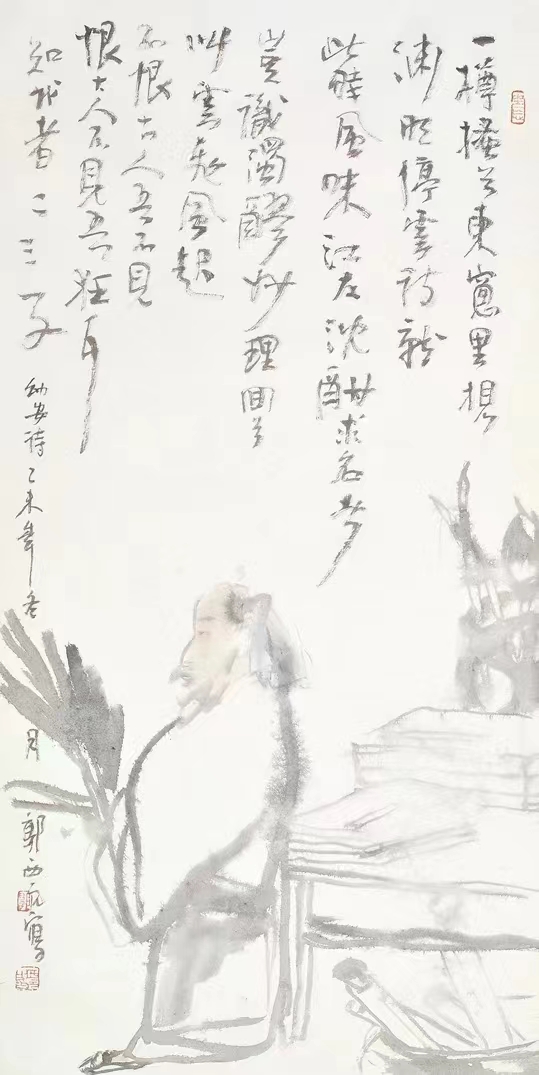 一樽搔首東窻里想
渊明停雲詩就
此時風味江左沈酣求名者
豈識濁醪妙理回首
叫雲飛風起
不恨古人吾不見
恨古人不見吾狂耳
知我者二三子
幼安詩乙未年冬月郭西元寫